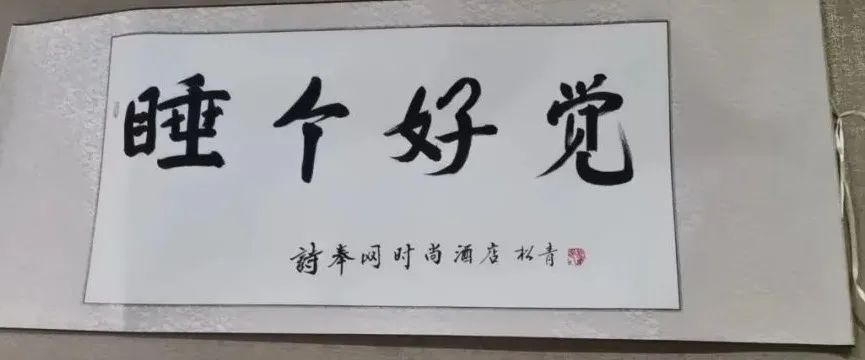 睡个好觉
詩奉网时尚酒店 松青